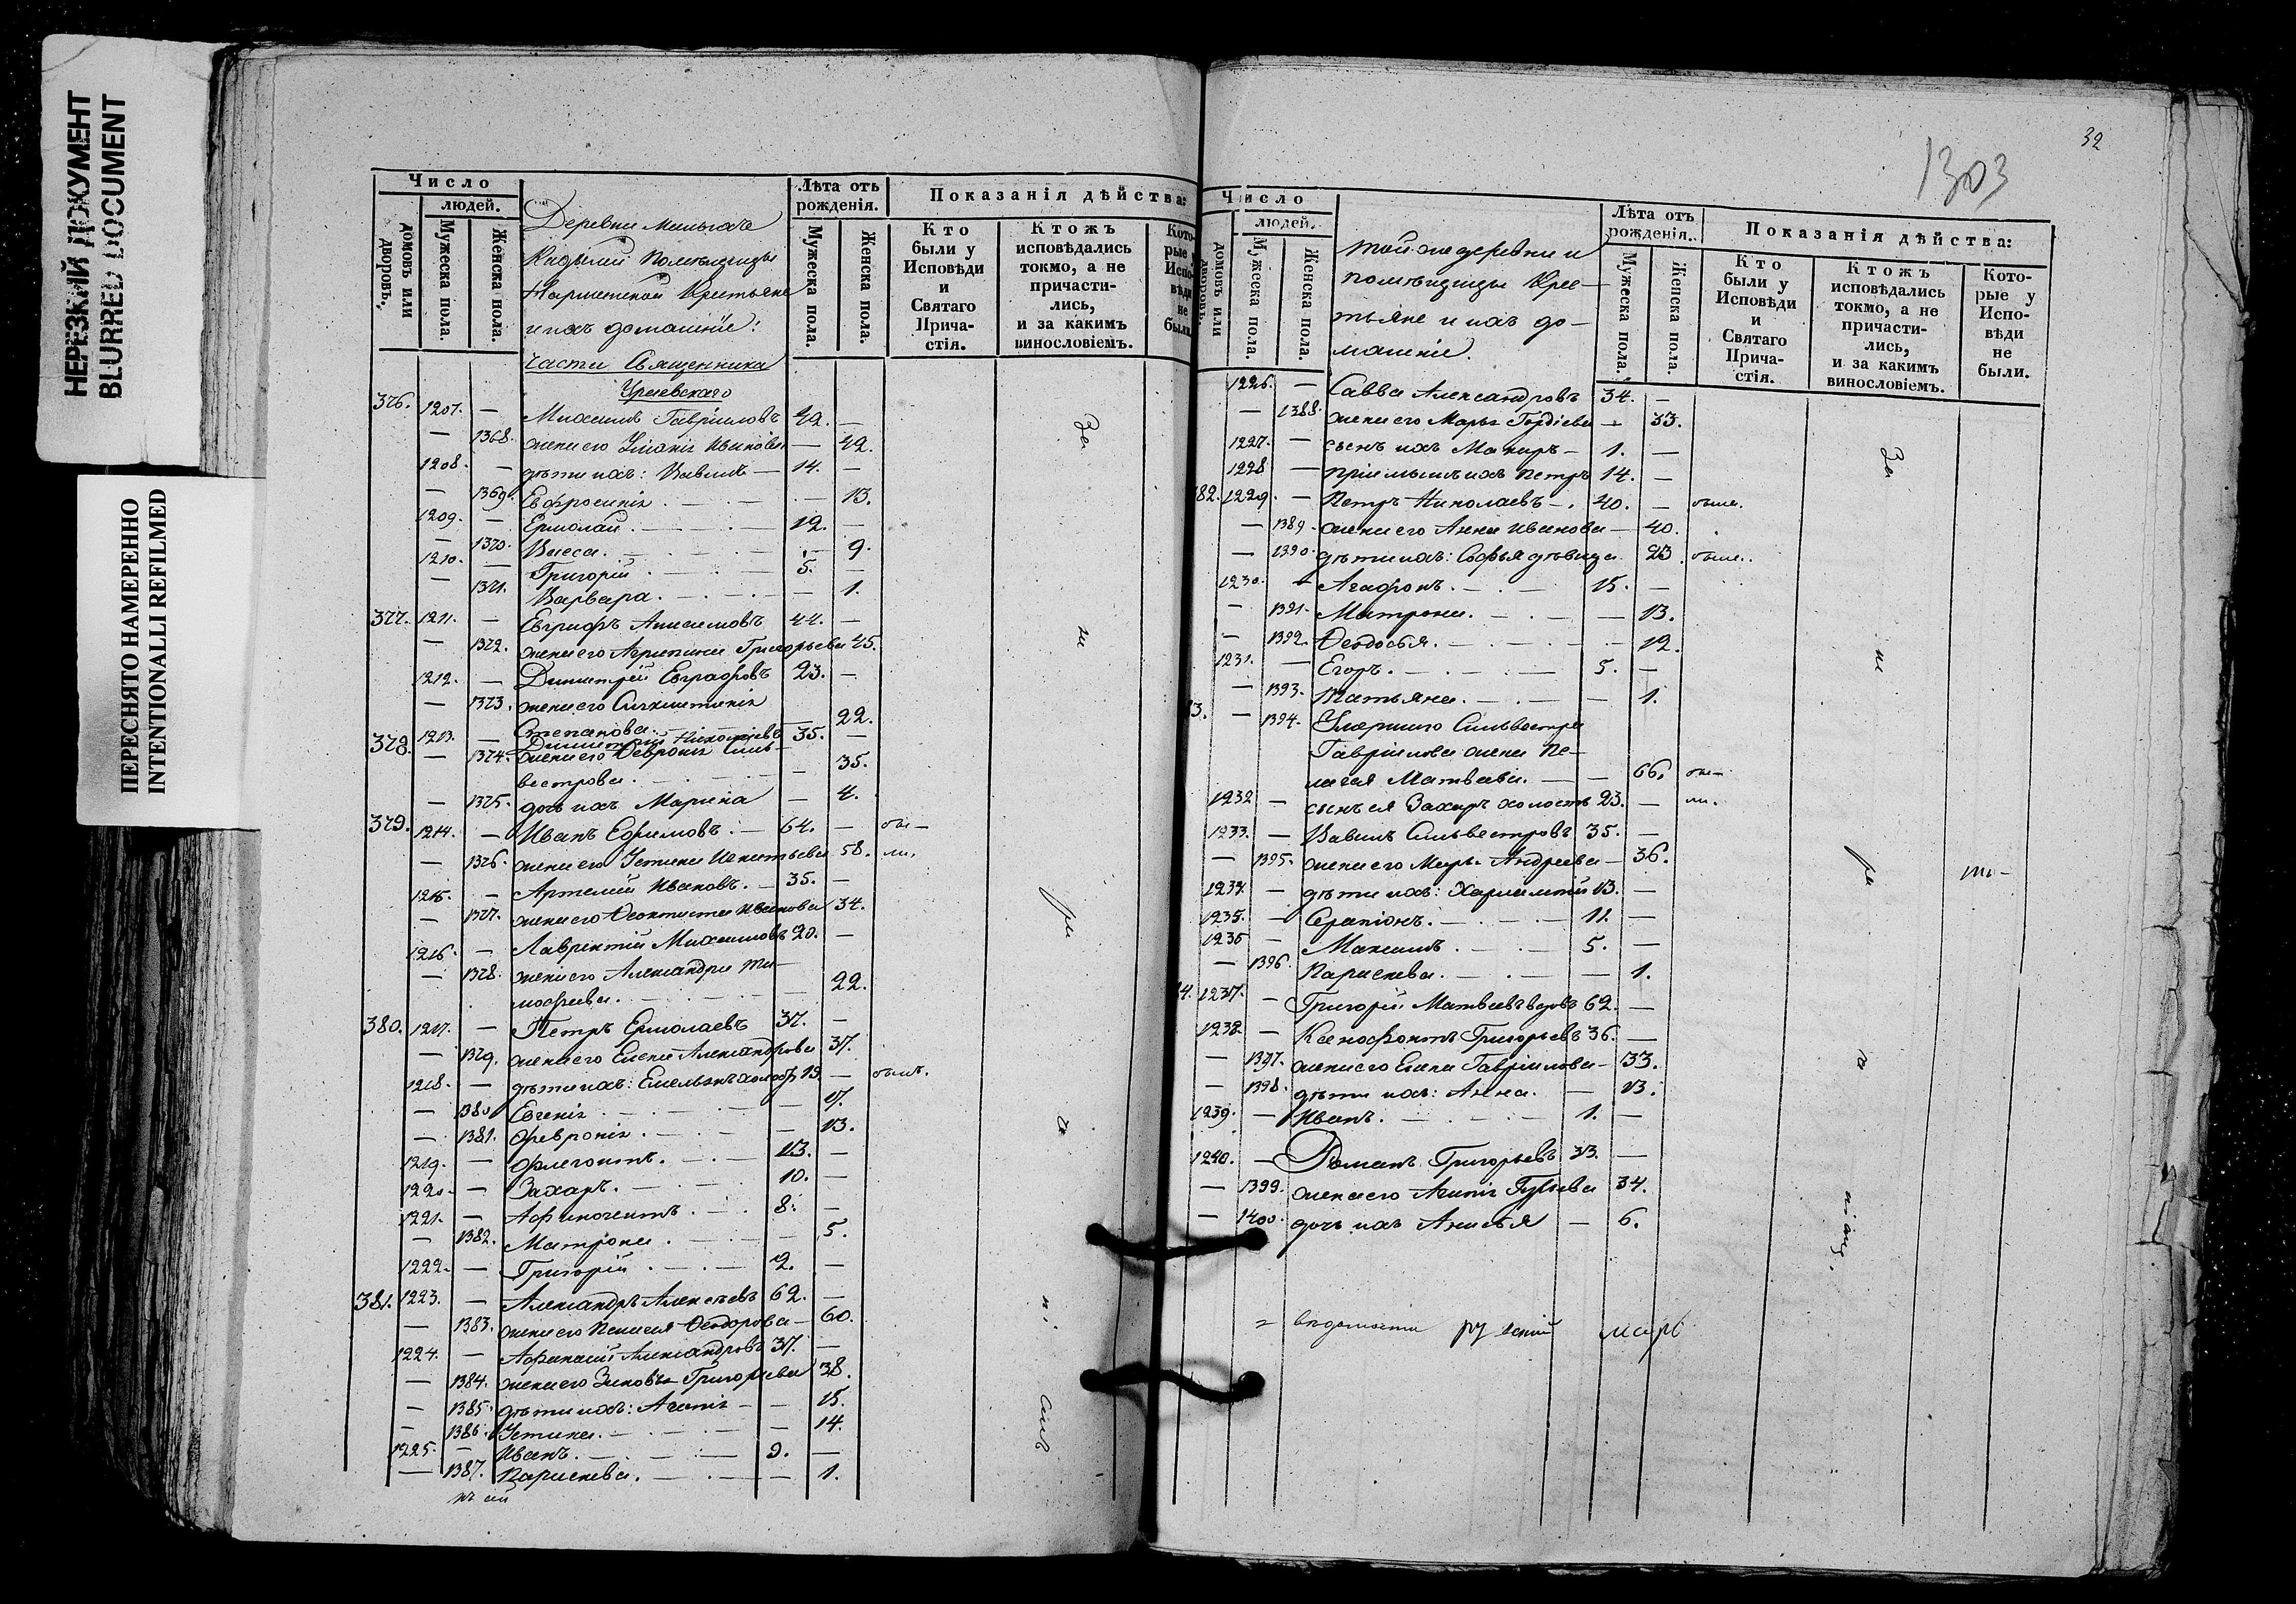 НЕРЕЗКИЙ ДОКУМЕНТ
BLURRED DOCUMENT
ПЕРЕСНЯТО НАМЕРЕННО
INTENTIONALLI REFILMED
Число
людей.
домовъ или дворовъ.
Мужеска пола.
Женска пола.
Деревни
помѣщицы
Крестьяне
и ихъ домашніе:
части Священника
Лѣта отъ рожденія.
Мужеска пола.
Женска пола.
Показанія дѣйства:
Кто были у Исповѣди и Святаго Прича-стія.
Ктожъ исповѣдались токмо, а не причасти-лись, и за какимъ винословіемъ.
376. 1207. — Михаилъ Гавріиловъ 42. —
— 1368. жена его Іуліанія Иванова — 42.
1208. — дѣти ихъ: Вавилъ — 14. —
— 1369. Евфросинія — 13.
1209. — Ермолай 12. —
— 1370. Васса — 9.
1210. — Григорій 5. —
— 1371. Варвара — 1.
377. 1211. — Евграфъ Анисимовъ 44. —
— 1372. жена его Агрипина Григорьева 45.
1212. — Димитрій Евграфовъ 23. —
— 1373. жена его Синклитикія
Степанова — 22.
378. 1213. — Димитрій 35. —
— 1374. жена его Февронія Силь-
вестрова — 35.
— 1375. дочь ихъ Марина — 4.
379. 1214. — Иванъ Ефимовъ — 64. — бы-
— 1376. жена его Устина Игнатьева 58. ли.
1215. — Артемій Ивановъ. — 35. —
— 1377. жена его Феоктиста Иванова 34.
1216. — Лаврентій Михаиловъ 20. —
— 1378. жена его Александра Ти-
мофеева — 22.
380. 1217. — Петръ Ермолаевъ 37. —
— 1379. жена его Елена Александрова 37.
1218. — дѣти ихъ: Емельянъ холост. 19. — былъ.
— 1380 Евгенія — 17.
— 1381. Февронія — 13.
1219. — Флегонтъ 13. —
1220. — Захаръ 10. —
1221. — 8. —
— 1382. Матрона — 5.
1222. — Григорій 2. —
381. 1223. — Александръ Алексѣевъ 62. —
— 1383. жена его Пелагея Феодорова — 60.
1224. — Афанасій Александровъ 37. —
— 1384. жена его Зиновья Григорьева 38.
— 1385. дѣти ихъ: Агапія — 15.
— 1386. Устина — 14.
1225. — Иванъ 9. —
— 1387. Параскева — 1.
32
1303
Число
людей.
домовъ или дворовъ.
Мужеска пола.
Женска пола.
той же деревни и
помѣщицы Крес-
тьяне и ихъ до-
машніе
Лѣта отъ рожденія.
Мужеска пола.
Женска пола.
Показанія дѣйства:
Кто были у Исповѣди и Святаго Прича-стія.
Ктожъ исповѣдались токмо, а не причасти-лись, и за какимъ винословіемъ.
Кото-рые у Испо-вѣди не были.
1226. — Савва Александровъ 34. —
— 1388. жена его Марья Гордіева — 33.
1227. — сынъ ихъ Макаръ — 1. —
1228 — пріемышъ ихъ Петръ 14. —
382. 1229. — Петръ Николаевъ — 40. — были.
— 1389. жена его Анна Иванова — 40.
— 1390. дѣти ихъ: Софья дѣвица 23 были.
1230. — Агафонъ 15. —
— 1391. Матрона — 13.
— 1392. Феодосья — 12.
1231. — Егоръ 5. —
— 1393. Татьяна — 1.
— 1394. Умершаго Сильвестра
Гавріилова жена Пе-
лагея Матвеева — 66. бы-
1232 — сынъ ея Захаръ холостъ 23. — ли.
1233. — Вавилъ Сильвестровъ 35. —
— 1395. жена его Марья Андреева — 36.
1234. — дѣти ихъ: Харлампій 13. —
1235. — Серапіонъ 11. —
1236 — Максимъ 5. —
— 1396. Параскева — 1.
1237. — Григорій Матвеевъ вдовъ 62. —
1238. — Ксенофонтъ Григорьевъ 36. —
— 1397. жена его Елена Гавріилова — 33.
— 1398. дѣти ихъ: Анна — 13.
1239. — Иванъ 1. —
1240. — Романъ Григорьевъ 33. —
— 1399. жена его Агапія Гурьева 34.
— 1400. дочь ихъ Анисья — 6.